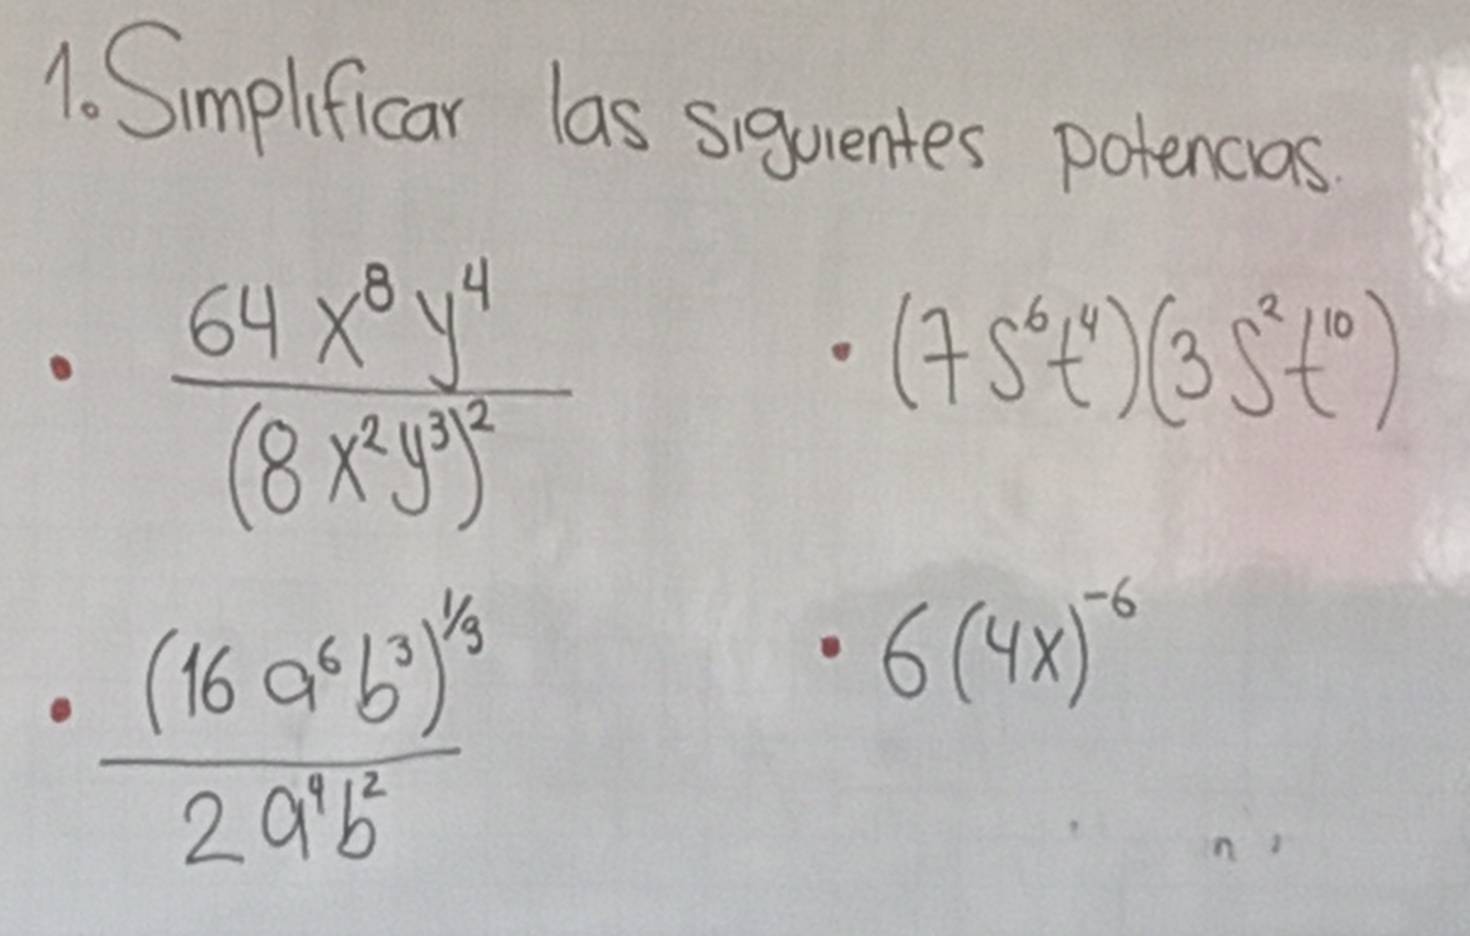 1. Simplificar las siguientes potencias.
• 64 x⁸ y⁴ / (8 x² y³)²
• (7 s⁶ t⁴)(3 s² t¹⁰)
• (16 a⁶ b³)^1/3 / 2 a⁴ b²
• 6 (4x)⁻⁶